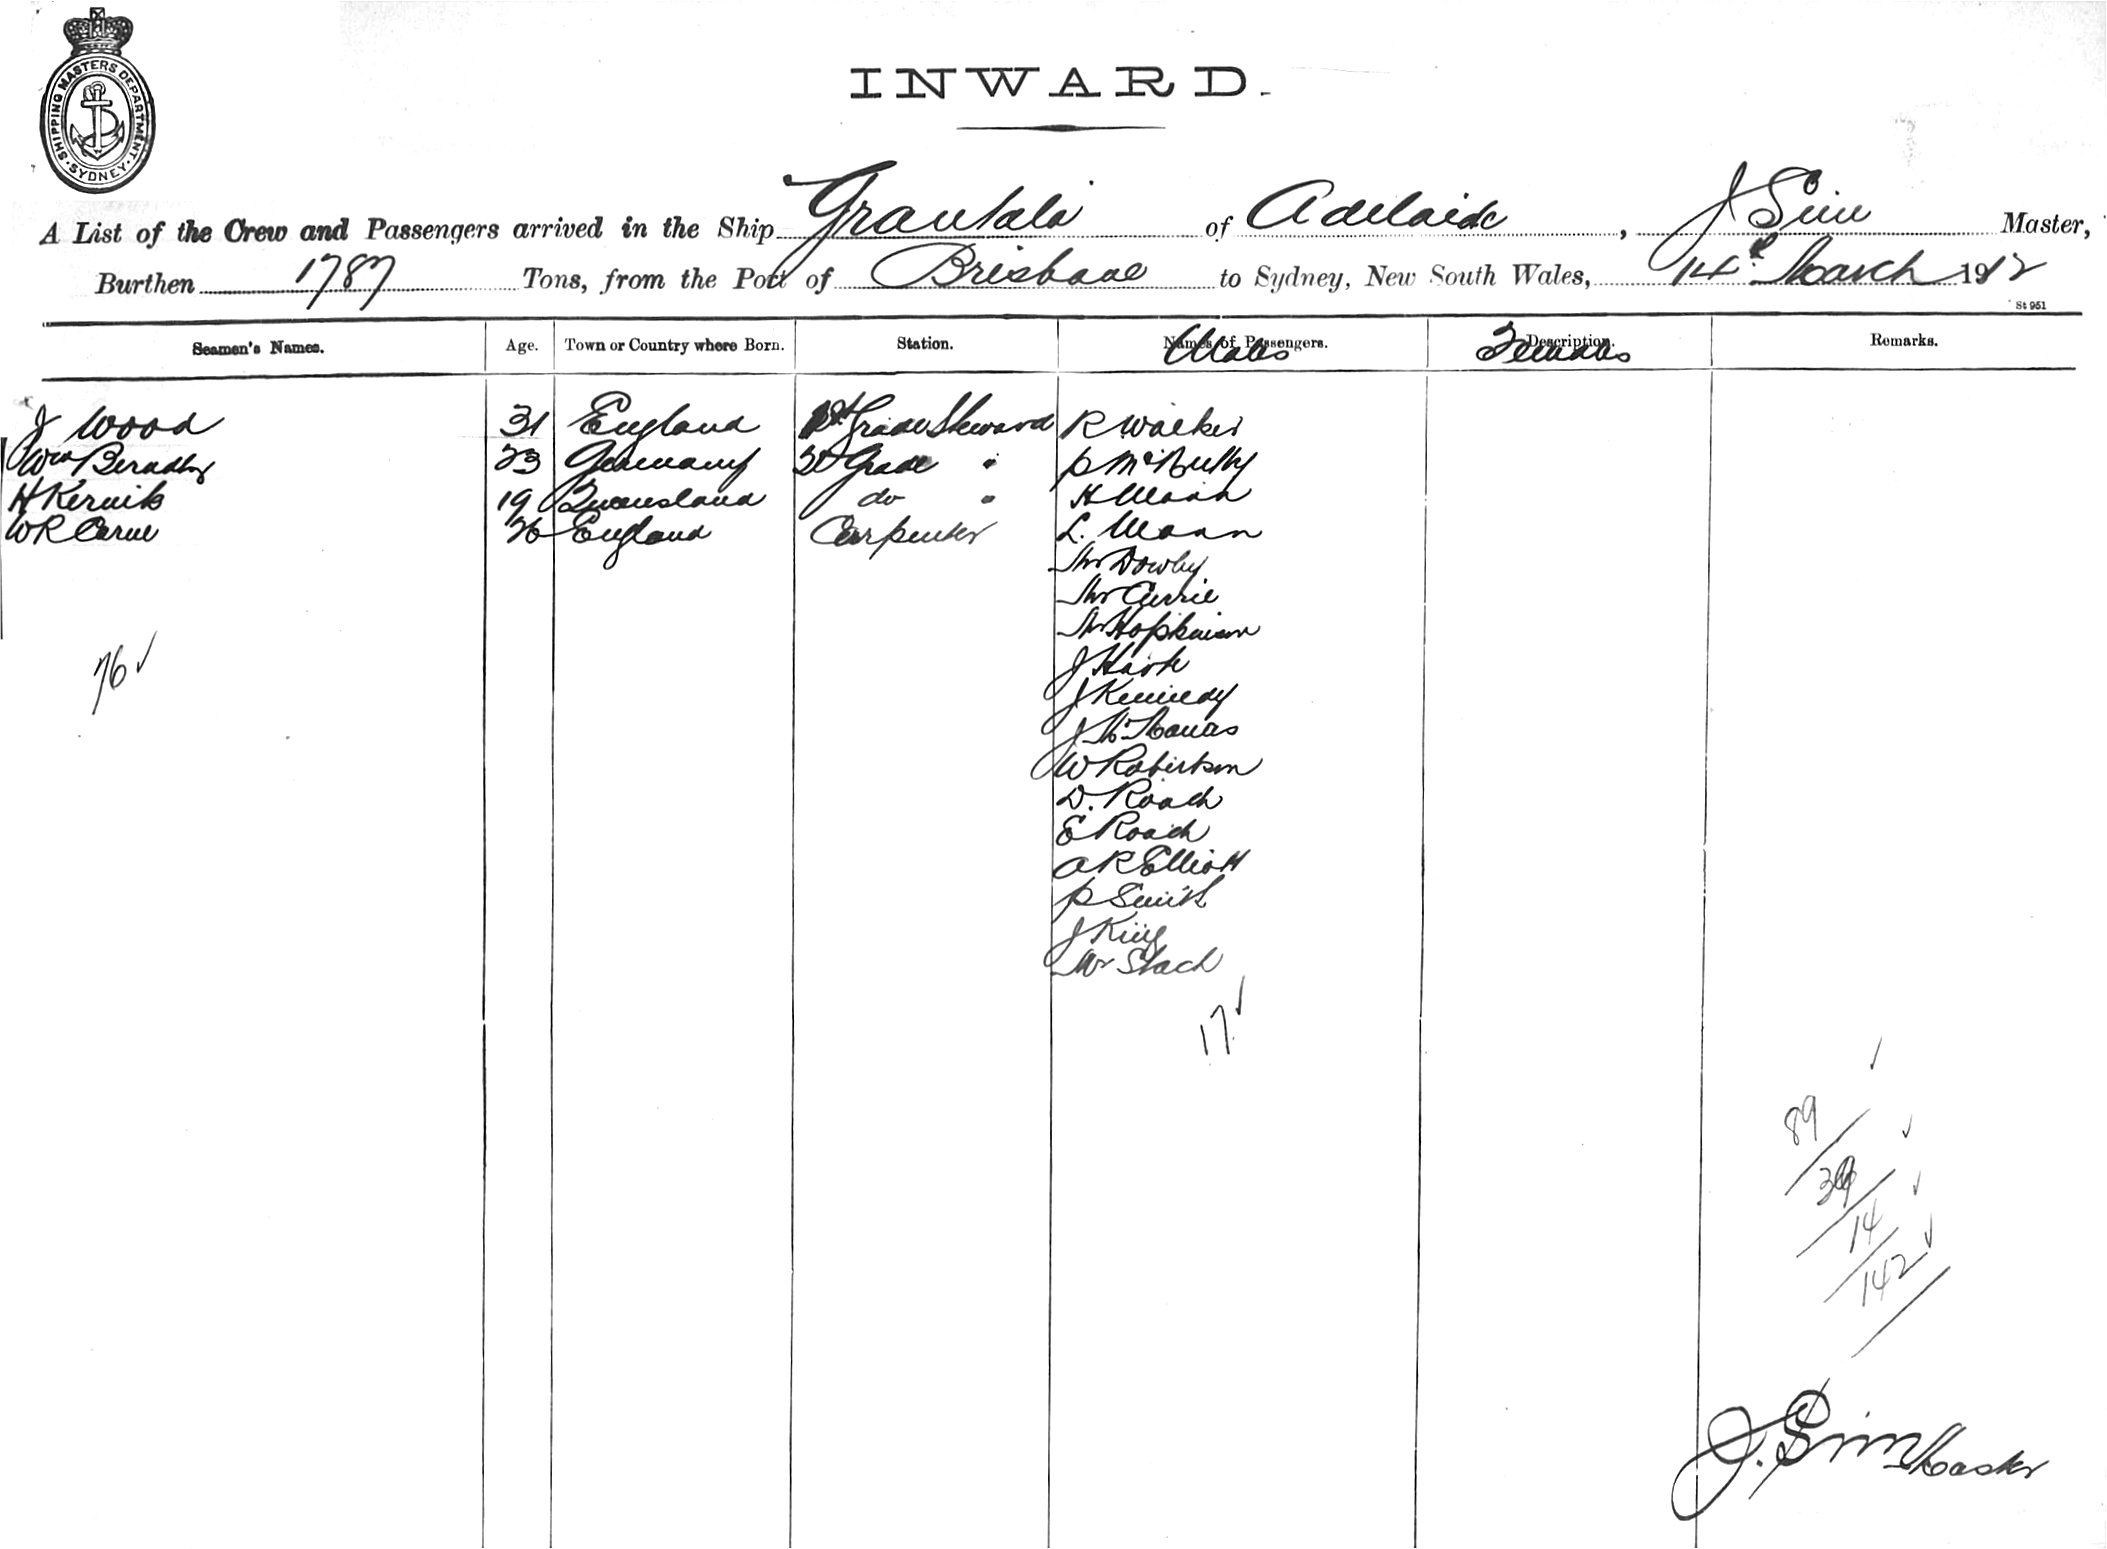 SHIPPING MASTERS DEPARTMENT. SYDNEY
INWARD.
A List of the Crew and Passengers arrived in the Ship Grantala of Adelaide, J Sim Master,
Burthen 1787 Tons, from the Port of Brisbane to Sydney, New South Wales, 14th March 1912
St 951
Seamen's Names. Age. Town or Country where Born. Station. Names of Passengers. Description. Remarks.
Males Females
J Wood 31 England 1st Grade Steward R Walker
Wm 23 Germany 2d Grade " P McNulty
H Kernik 19 Queensland do " H Mann
W R Carne 26 England Carpenter L. Mann
Mr Dowby
Mr Currie
Mr Hopkinson
J Hart
J Kennedy
J McManus
W Robertson
D. Roach
E Roach
A R Elliott
P Smith
J King
Mr Stach
76
17
89
39
14
142
J. Sim Master